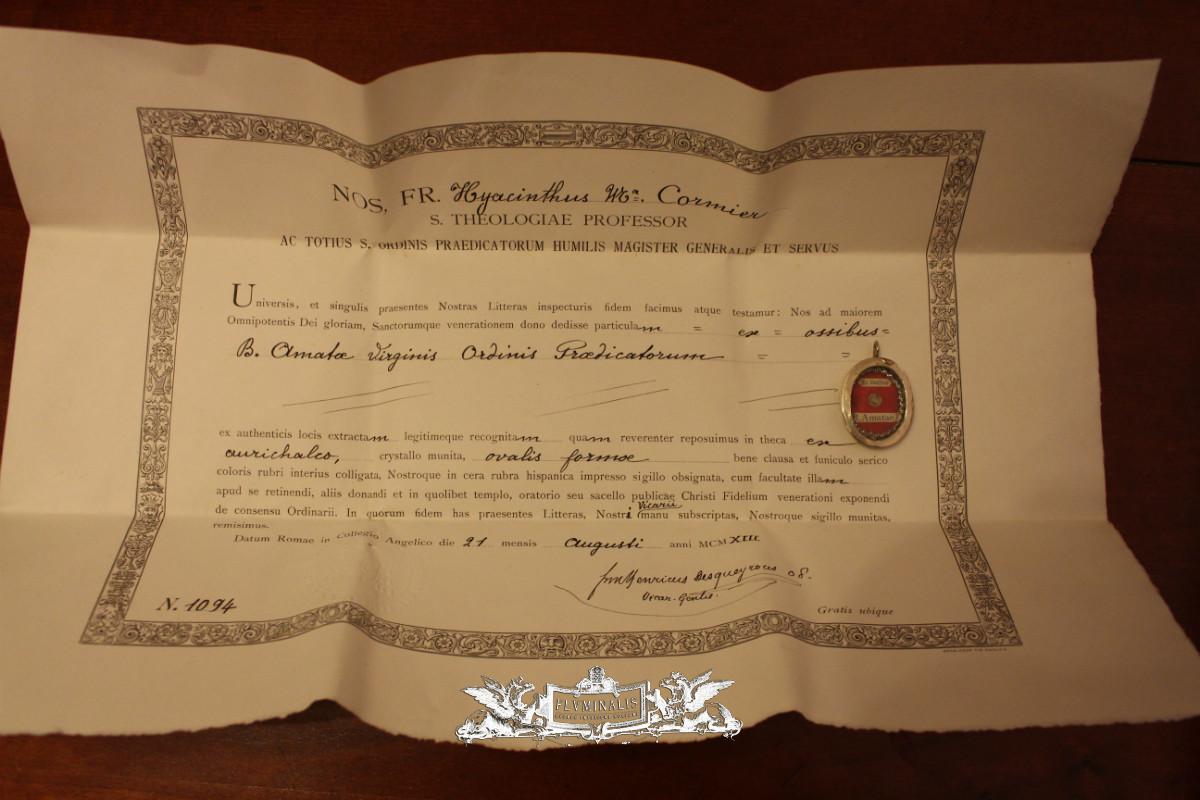 NOS, FR. Hyacinthus Ma. Cormier
S. THEOLOGIAE PROFESSOR
AC TOTIUS S. ORDINIS PRAEDICATORUM HUMILIS MAGISTER GENERALIS ET SERVUS
Universis, et singulis praesentes Nostras Litteras inspecturis fidem facimus atque testamur: Nos ad maiorem
Omnipotentis Dei gloriam, Sanctorumque venerationem dono dedisse particulam = ex = ossibus =
B. Amatæ Virginis Ordinis Prædicatorum = =
Amatae
ex authenticis locis extractam legitimeque recognitam quam reverenter reposuimus in theca ex
aurichalco, crystallo munita, ovalis formæ bene clausa et funiculo serico
coloris rubri interius colligata, Nostroque in cera rubra hispanica impresso sigillo obsignata, cum facultate illam
apud se retinendi, aliis donandi et in quolibet templo, oratorio seu sacello publicae Christi Fidelium venerationi exponendi
Vicarii
de consensu Ordinarii. In quorum fidem has praesentes Litteras, Nostri manu subscriptas, Nostroque sigillo munitas,
remisimus.
Datum Romae in Collegio Angelico die 21 mensis Augusti anni MCMXIII
fr. Henricus Desqueyrous op.
Vicar. Gentlis.
N. 1094
Gratis ubique
FLVMINALIS